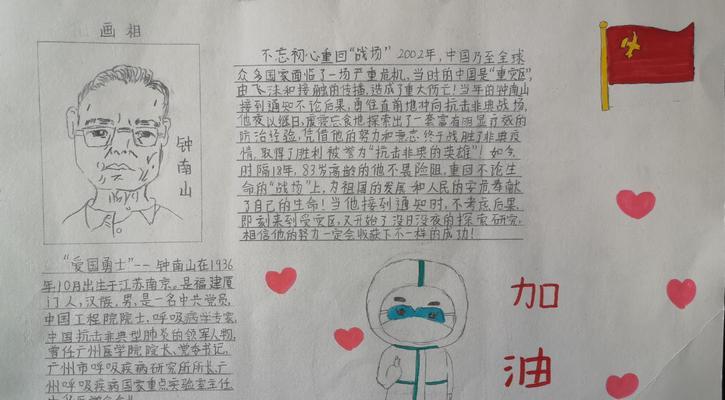 画相
钟南山
不忘初心重回“战场” 2002年,中国乃至全球
众多国家面临了一场严重危机,当时的中国是“重灾区”,
由飞沫和接触的传播,造成了重大伤亡!当年的钟南山
接到通知不论后果,勇往直前地冲向抗击非典战场,
他夜以继日,废寝忘食地探索出了一套富有明显疗效的
防治经验,凭借他的努力和意志终于战胜了非典疫
情,取得了胜利被誉为“抗击非典的英雄”!如今,
时隔18年,83岁高龄的他不畏险阻,重回不论生
命的“战场”上,为祖国的发展和人民的安危奉献
了自己的生命!当他接到通知时,不考虑后果,
即刻来到受灾区,又开始了没日没夜的探索研究,
相信他的努力一定会收获下不一样的成功!
“爱国勇士”--钟南山在1936
年10月出生于江苏南京。是福建厦
门人,汉族,男,是一名中共党员,
中国工程院院士,呼吸病学专家,
中国抗击非典型肺炎的领军人物,
曾任广州医学院院长、党委书记,
广州市呼吸疾病研究所所长,广
州呼吸疾病国家重点实验室主任
加
油